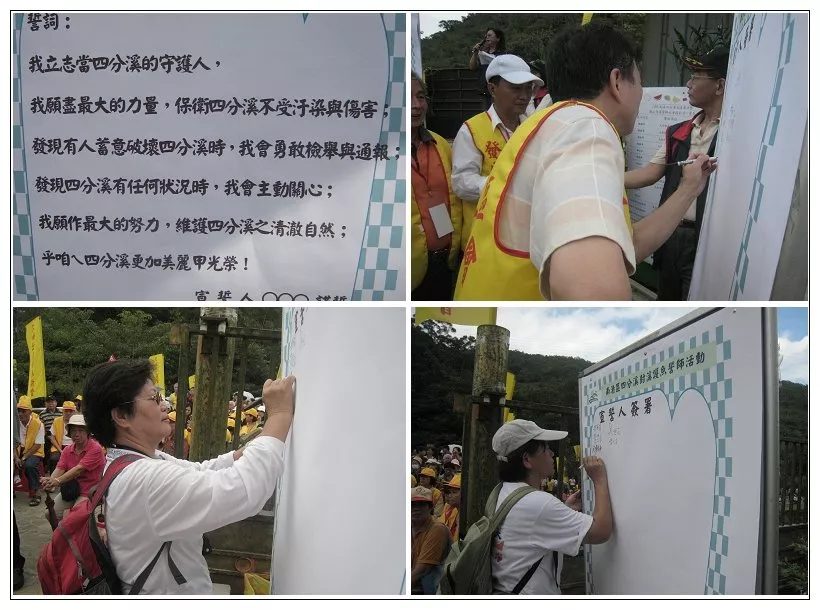 誓詞：
我立志當四分溪的守護人，
我願盡最大的力量，保衛四分溪不受汙染與傷害；
發現有人蓄意破壞四分溪時，我會勇敢檢舉與通報；
發現四分溪有任何狀況時，我會主動關心；
我願作最大的努力，維護四分溪之清澈自然；
乎咱ㄟ四分溪更加美麗甲光榮！
宣誓人 ○○○ 謹誓
發
南港區四分溪封溪護魚誓師活動
宣誓人簽署